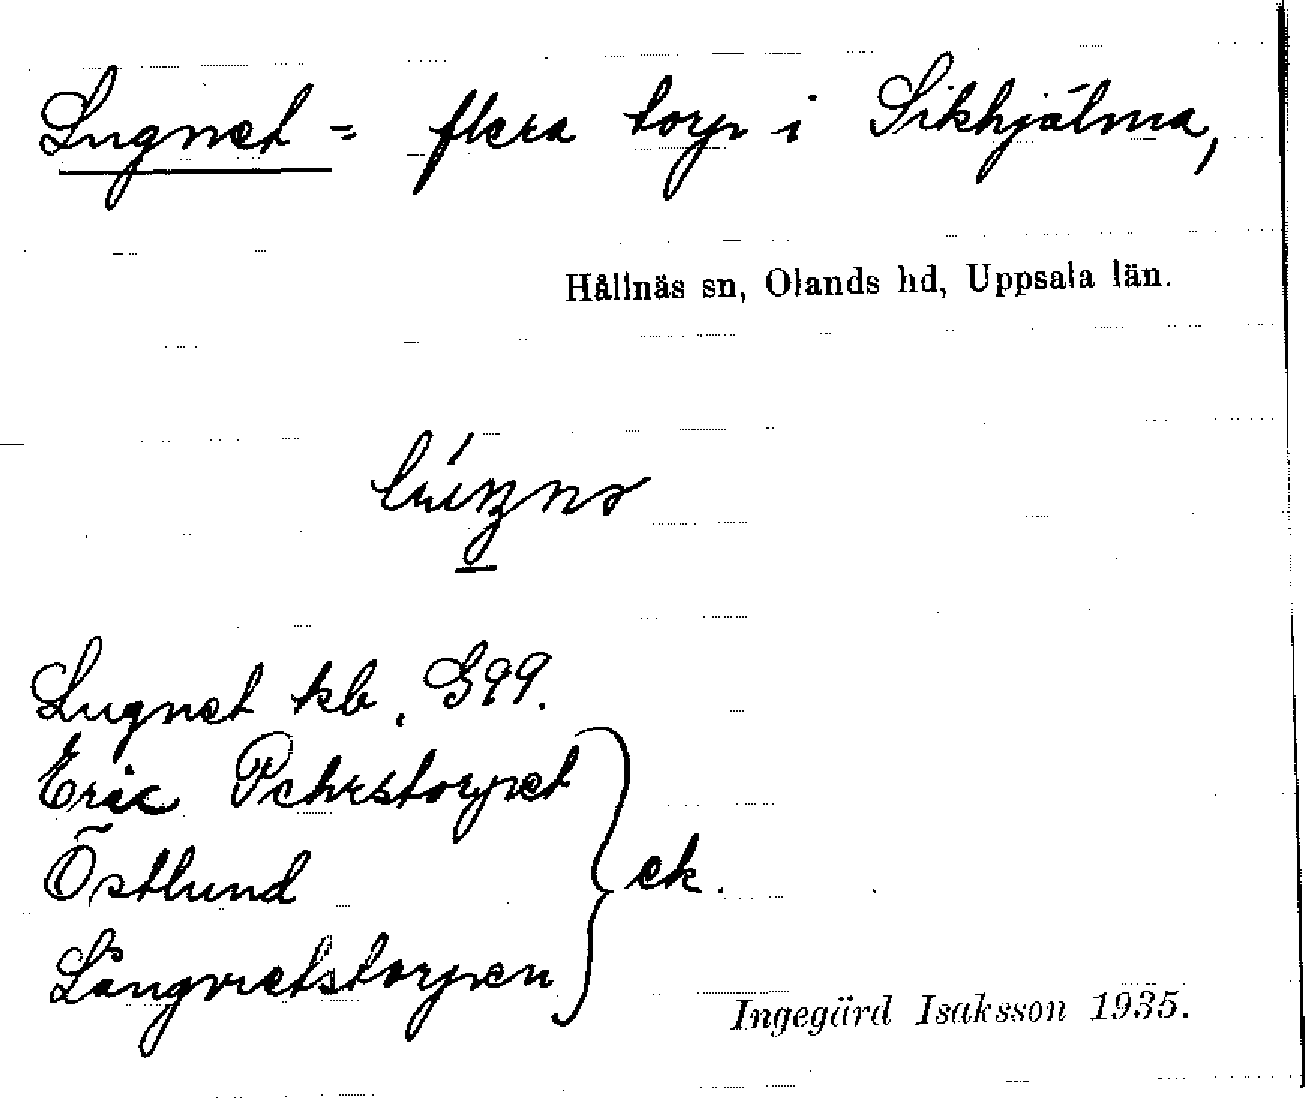 Lugnet = flera torp i Sikhjälma,
Hållnäs sn, Olands hd, Uppsala län.
Lugnet kb. G99.
Eric Pehrstorpet
Östlund
ek.
Långvretstorpen
Ingegärd Isaksson 1935.